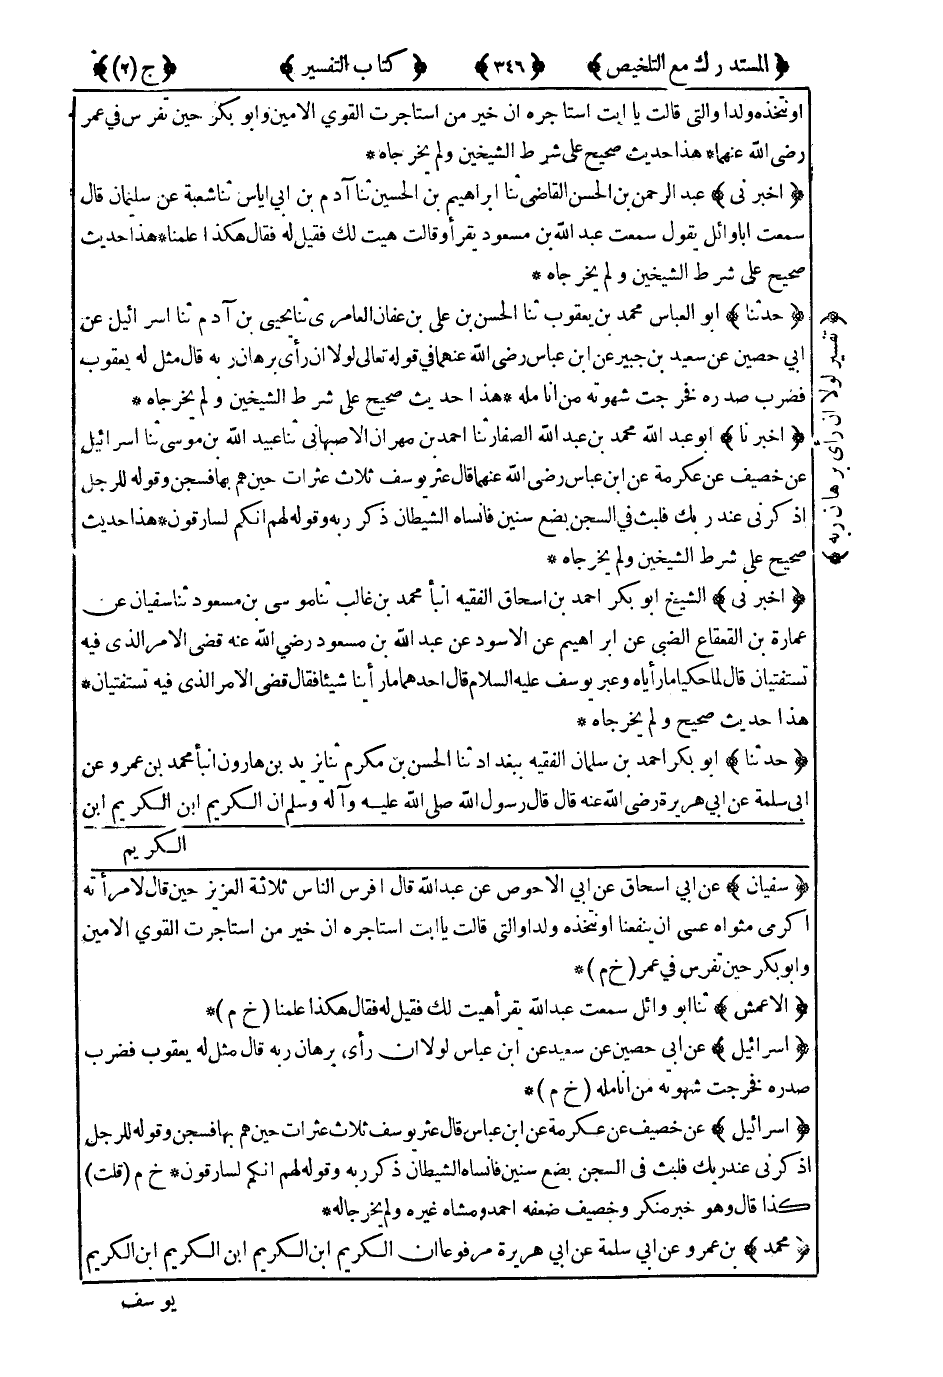 ﴿ المستدرك مع التلخيص ﴾ ﴿ ٣٤٦ ﴾ ﴿ كتاب التفسير ﴾ ﴿ ج (٢) ﴾
او نتخذه ولدا والتى قالت يا ابت استاجره ان خير من استاجرت القوي الامين وابو بكر حين تفرس في عمر
رضى الله عنهما* هذا حديث صحيح على شرط الشيخين ولم يخرجاه *
﴿ اخبرنى ﴾ عبد الرحمن بن الحسن القاضى ثنا ابراهيم بن الحسين ثنا آدم بن ابي اياس ثنا شعبة عن سليمان قال
سمعت ابا وائل يقول سمعت عبد الله بن مسعود يقرأ وقالت هيت لك فقيل له فقال هكذا علمنا* هذا حديث
صحيح على شرط الشيخين ولم يخرجاه *
﴿ حدثنا ﴾ ابو العباس محمد بن يعقوب ثنا الحسن بن على بن عفان العامرى ثنا يحيى بن آدم ثنا اسرائيل عن
ابي حصين عن سعيد بن جبير عن ابن عباس رضى الله عنهما في قوله تعالى لولا ان رأى برهان ربه قال مثل له يعقوب
فضرب صدره فخرجت شهوته من انامله * هذا حديث صحيح على شرط الشيخين ولم يخرجاه *
﴿ اخبرنا ﴾ ابو عبد الله محمد بن عبد الله الصفار ثنا احمد بن مهران الاصبهانى ثنا عبيد الله بن موسى ثنا اسرائيل
عن خصيف عن عكرمة عن ابن عباس رضى الله عنهما قال عثر يوسف ثلاث عثرات حين هم بها فسجن وقوله للرجل
اذكرنى عند ربك فلبث في السجن بضع سنين فانساه الشيطان ذكر ربه وقوله لهم انكم لسارقون* هذا حديث
صحيح على شرط الشيخين ولم يخرجاه *
﴿ اخبرنى ﴾ الشيخ ابو بكر احمد بن اسحاق الفقيه انبأ محمد بن غالب ثنا موسى بن مسعود ثنا سفيان عن
عمارة بن القعقاع الضبى عن ابراهيم عن الاسود عن عبد الله بن مسعود رضي الله عنه قضى الامر الذى فيه
تستفتيان قال لما حكيا ما رأياه وعبر يوسف عليه السلام قال احدهما ما رأينا شيئا فقال قضى الامر الذى فيه تستفتيان*
هذا حديث صحيح ولم يخرجاه *
﴿ حدثنا ﴾ ابو بكر احمد بن سلمان الفقيه ببغداد ثنا الحسن بن مكرم ثنا يزيد بن هارون انبأ محمد بن عمرو عن
ابى سلمة عن ابي هريرة رضى الله عنه قال قال رسول الله صلى الله عليه وآله وسلم ان الكريم ابن الكريم ابن
الكريم
﴿ تفسير لولا ان رأى برهان ربه ﴾
﴿ سفيان ﴾ عن ابي اسحاق عن ابي الاحوص عن عبدالله قال افرس الناس ثلاثة العزيز حين قال لامرأته
اكرمى مثواه عسى ان ينفعنا او نتخذه ولدا والتى قالت يا ابت استاجره ان خير من استاجرت القوي الامين
وابو بكر حين تفرس في عمر (خ م) *
﴿ الاعمش ﴾ ثنا ابو وائل سمعت عبدالله يقرأ هيت لك فقيل له فقال هكذا علمنا (خ م) *
﴿ اسرائيل ﴾ عن ابي حصين عن سعيد عن ابن عباس لولا ان رأى برهان ربه قال مثل له يعقوب فضرب
صدره فخرجت شهوته من انامله (خ م) *
﴿ اسرائيل ﴾ عن خصيف عن عكرمة عن ابن عباس قال عثر يوسف ثلاث عثرات حين هم بها فسجن وقوله للرجل
اذكرنى عند ربك فلبث فى السجن بضع سنين فانساه الشيطان ذكر ربه وقوله لهم انكم لسارقون* خ م (قلت)
كذا قال وهو خبر منكر وخصيف ضعفه احمد ومشاه غيره ولم يخرجا له*
﴿ محمد ﴾ بن عمرو عن ابي سلمة عن ابي هريرة مرفوعا ان الكريم ابن الكريم ابن الكريم ابن الكريم
يوسف